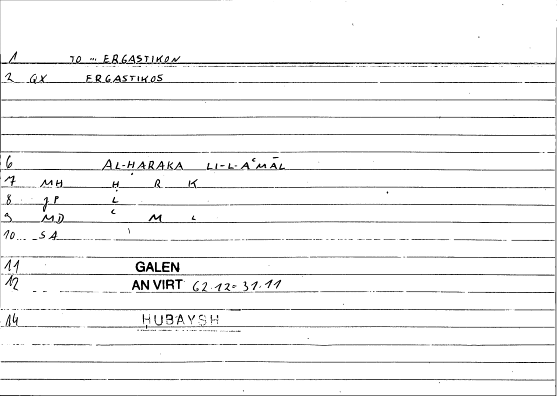 1 TO ... ERGASTIKON
2 QX ERGASTIKOS
6 AL-ḤARAKA LI-L-AʿMĀL
7 MH Ḥ R K
8 JP L
9 MD ʿ M L
10 SA
11 GALEN
12 AN VIRT 62.12 = 31.11
14 ḤUBAYSH